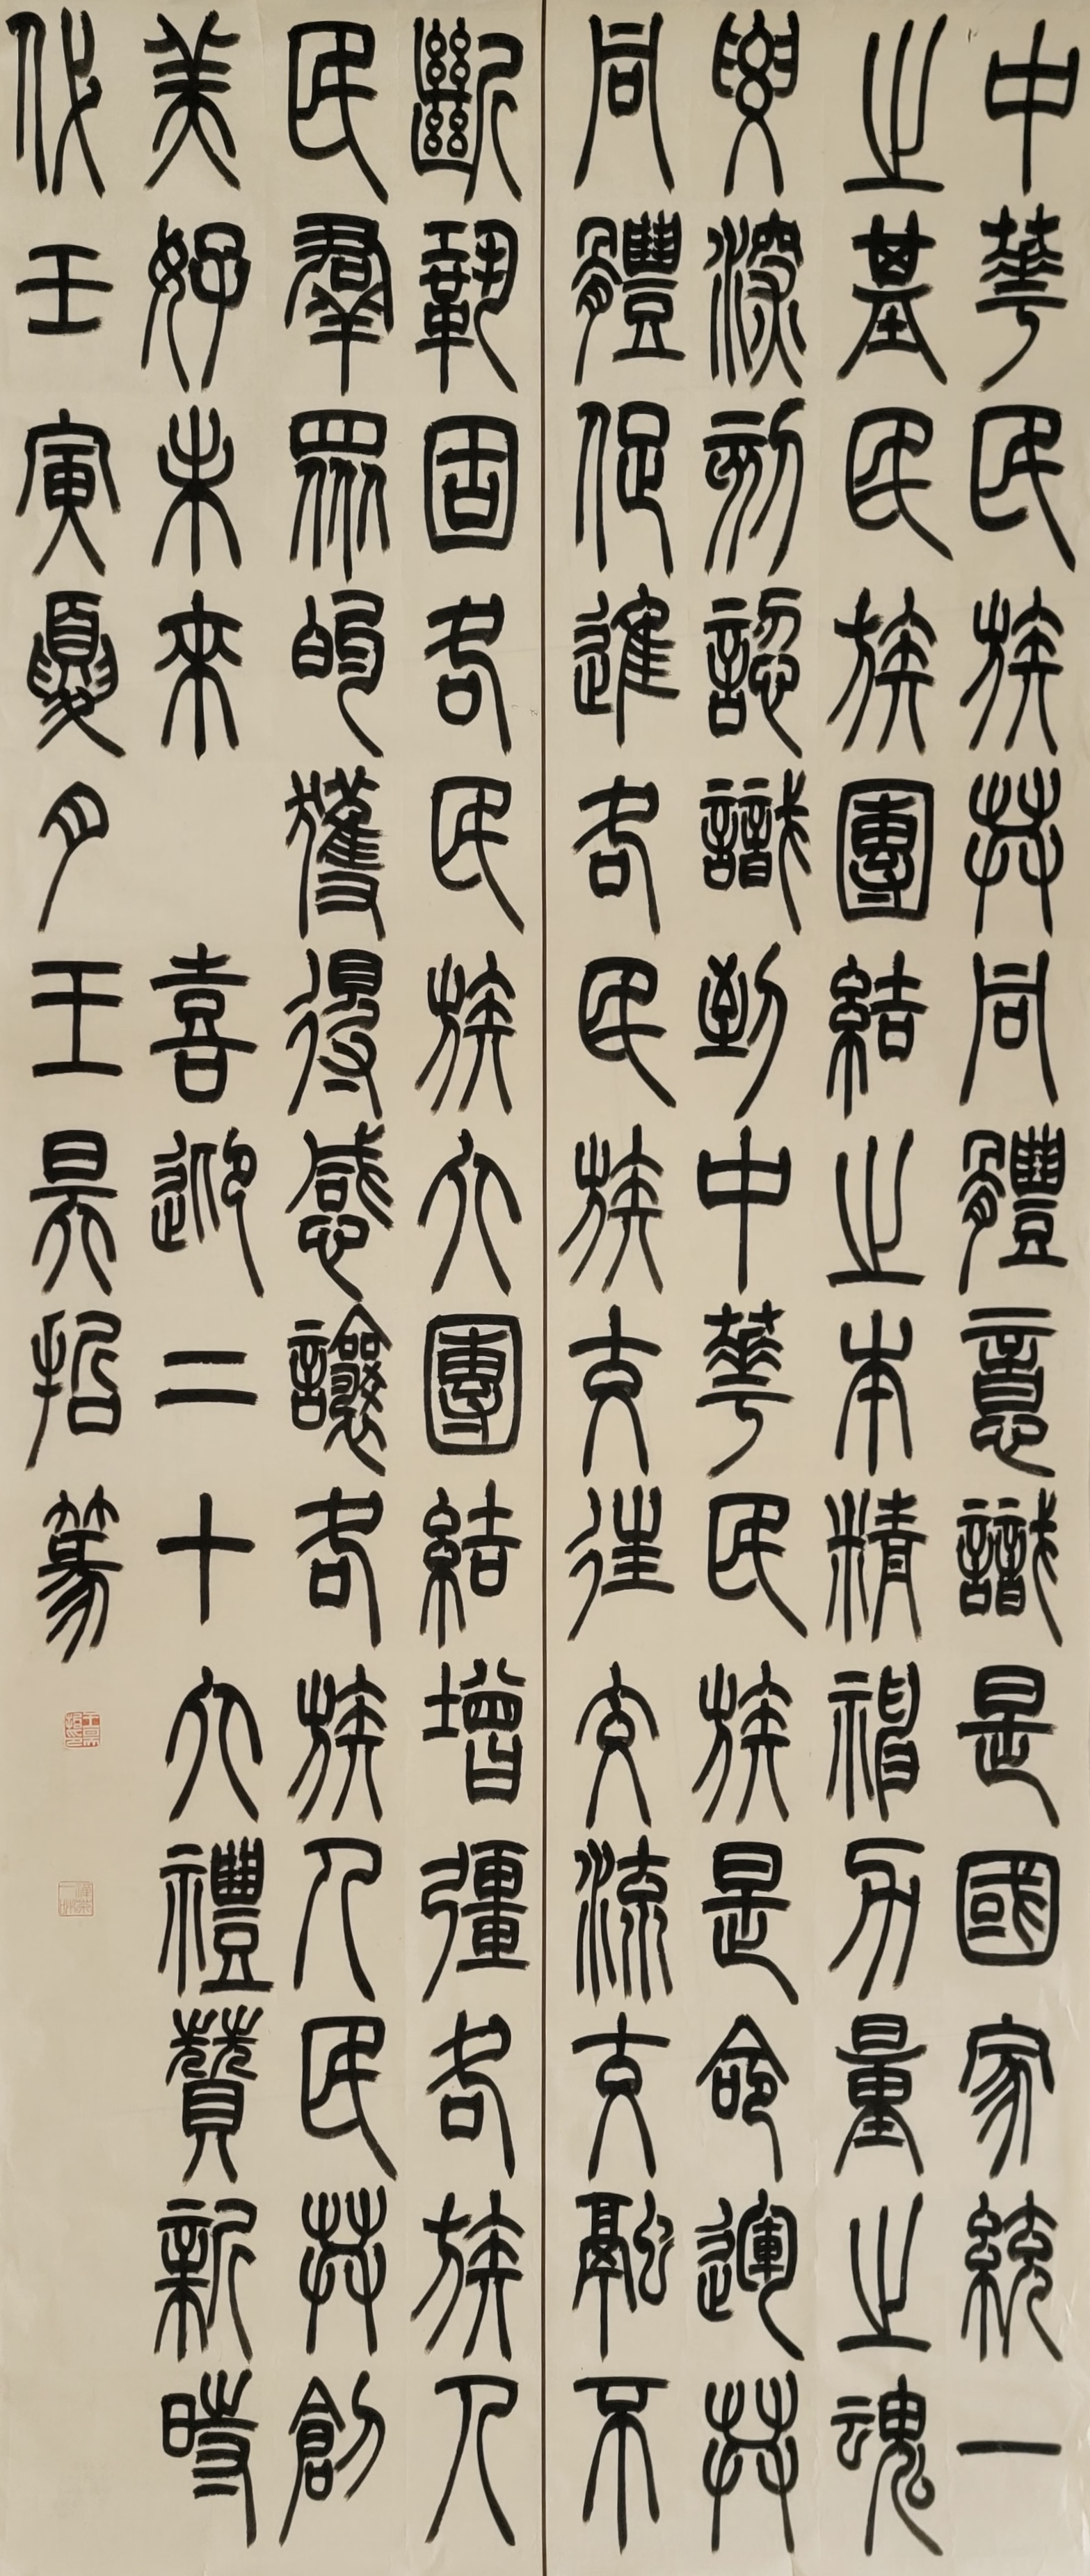 中華民族共同體意識是國家統一
之基民族團結之本精神力量之魂
要深刻認識到中華民族是命運共
同體促進各民族交往交流交融不
斷鞏固各民族大團結增彊各族人
民羣眾的獲得感讓各族人民共創
美好未來 喜迎二十大禮贊新時
代壬寅夏月王昊哲篆